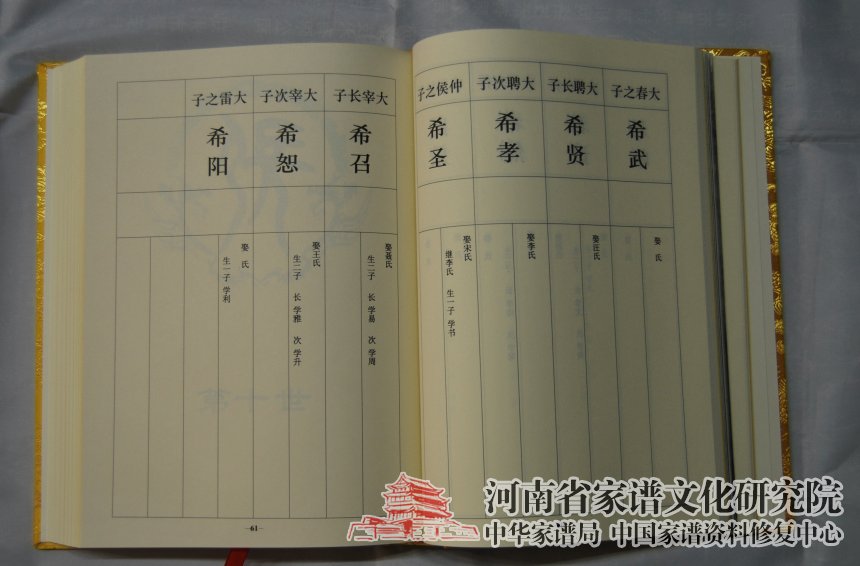 大春之子
希武
娶 氏
大聘长子
希贤
娶汪氏
大聘次子
希孝
娶李氏
仲侯之子
希圣
娶宋氏
继李氏 生一子 学书
大宰长子
希召
娶聂氏
生二子 长 学易 次 学周
大宰次子
希恕
娶王氏
生二子 长 学雅 次 学升
大雷之子
希阳
娶 氏
生一子 学利
—61—
河南省家谱文化研究院
中华家谱局 中国家谱资料修复中心